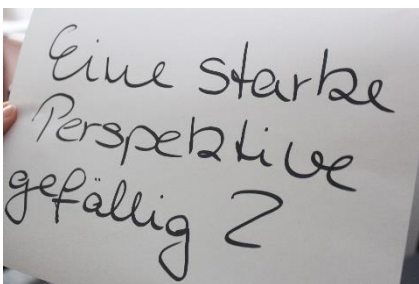 Eine starke
Perspektive
gefällig?